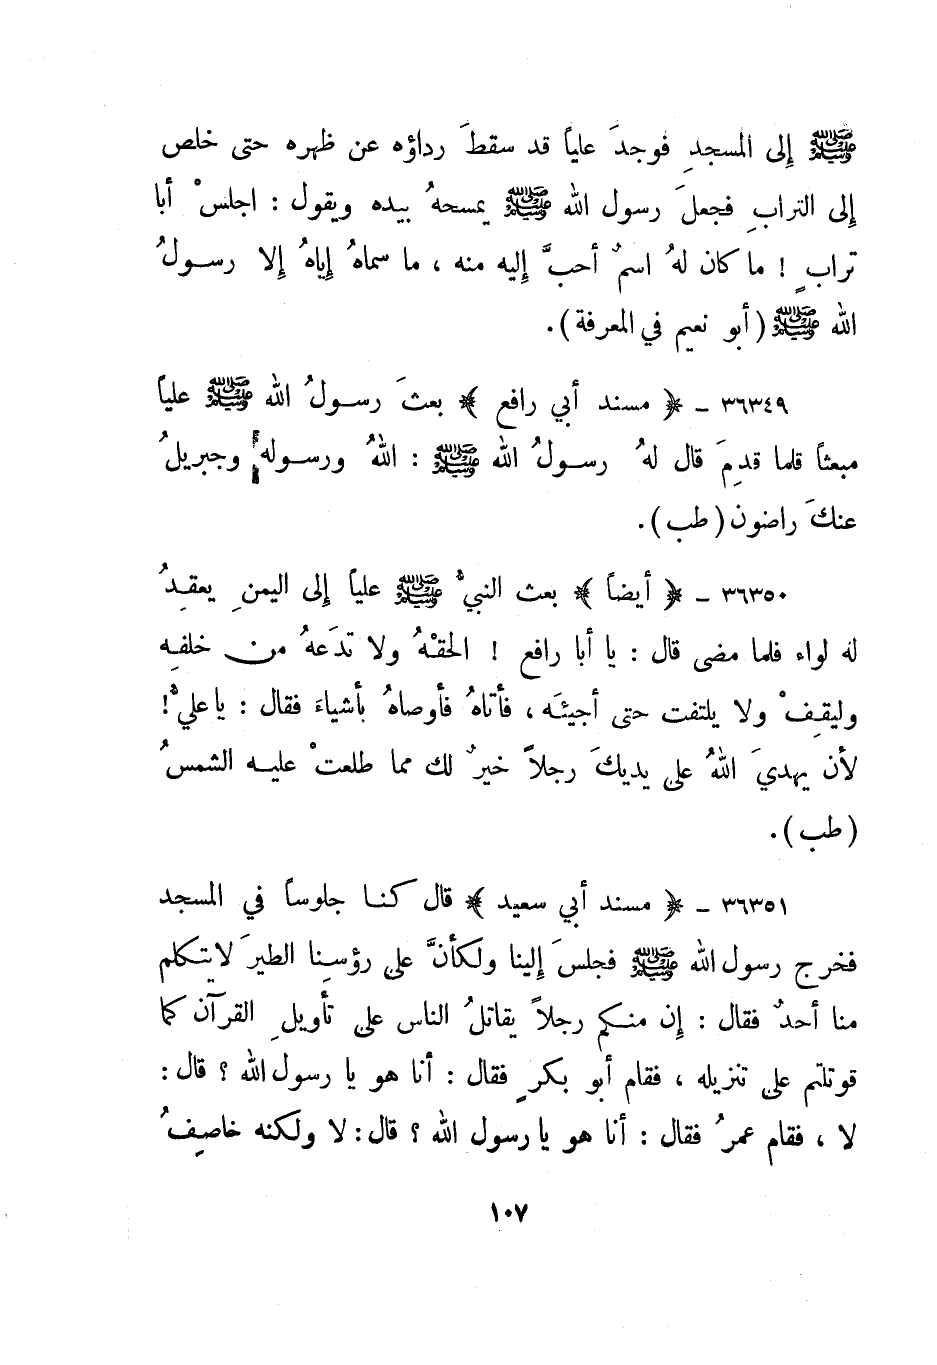 ﷺ إلى المسجدِ فوجدَ علياً قد سقطَ رداؤه عن ظهره حتى خلص
إلى الترابِ فجعلَ رسول الله ﷺ يمسحهُ بيده ويقول : اجلسْ أبا
ترابٍ ! ما كان لهُ اسمٌ أحبَّ إليه منه ، ما سماهُ إياهُ إلا رسولُ
الله ﷺ (أبو نعيم في المعرفة).
٣٦٣٤٩ ـ ﴿ مسند أبي رافع ﴾ بعثَ رسولُ الله ﷺ علياً
مبعثاً قلما قدِمَ قال لهُ رسولُ الله ﷺ : اللهُ ورسوله وجبريلُ
عنكَ راضون (طب).
٣٦٣٥٠ ـ ﴿ أيضاً ﴾ بعث النبيُّ ﷺ علياً إلى اليمنِ يعقِدُ
له لواء فلما مضى قال : يا أبا رافع ! الحقْهُ ولا تدَعهُ من خلفِه
وليقِفْ ولا يلتفت حتى أجيئَه ، فأتاهُ فأوصاهُ بأشياءَ فقال : يا عليُّ !
لأن يهديَ اللهُ على يديكَ رجلاً خيرٌ لك مما طلعتْ عليه الشمسُ
(طب).
٣٦٣٥١ ـ ﴿ مسند أبي سعيد ﴾ قال كنا جلوساً في المسجد
فخرج رسول الله ﷺ فجلسَ إلينا ولكأنَّ على رؤسِنا الطيرَ لا يتكلم
منا أحدٌ فقال : إن منكم رجلاً يقاتلُ الناس على تأويلِ القرآن كما
قوتلتم على تنزيله ، فقام أبو بكرٍ فقال : أنا هو يا رسول الله ؟ قال :
لا ، فقام عمرُ فقال : أنا هو يا رسول الله ؟ قال : لا ولكنه خاصِفُ
١٠٧